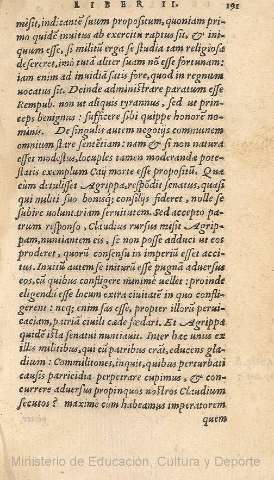 LIBER II. 191
misit, indicantē suum propositum, quoniam pri-
mo quidē inuitus ab exercitu raptus sit, & ini-
quum esse, si militū erga se studia tam religiosa
desereret, imò tutā aliter suam nō esse fortunam:
iam enim ad inuidiā satis fore, quod in regnum
uocatus sit. Deinde administrare paratum esse
Rempub. non ut aliquis tyrannus, sed ut prin-
ceps benignus: sufficere sibi quippe honorē no-
minis. De singulis autem negotijs communem
omnium stare sentētiam: nam & si non natura
esset modestus, locuples tamen moderandæ pote-
statis exemplum Caij morte esse propositū. Quæ
cum detulisset Agrippa, respōdit senatus, quasi
qui militi suo bonisq; consilijs fideret, nolle se
subire uoluntariam seruitutem. Sed accepto pa-
trum responso, Claudius rursus misit Agrip-
pam, nuntiantem eis, se non posse adduci ut eos
proderet, quorū consensu in imperiū esset acci-
tus. Inuitū autem se initurū esse pugnā aduersus
eos, cū quibus confligere minime uellet: proinde
eligendū esse locum extra ciuitatē in quo confli-
gerent: neq; enim fas esse, propter illorū perui-
caciam, patriā ciuili cæde fœdari. Et Agrippa
quidē ista senatui nuntiauit. Inter hæc unus ex
illis militibus, qui cū patribus erāt, educens gla-
dium: Commilitones, inquit, quibus perturbati
causis parricidia perpetrare cupimus, & con-
currere aduersus propinquos nostros Claudium
secutos? maximè cum habeamus imperatorem
quem
Ministerio de Educación, Cultura y Deporte